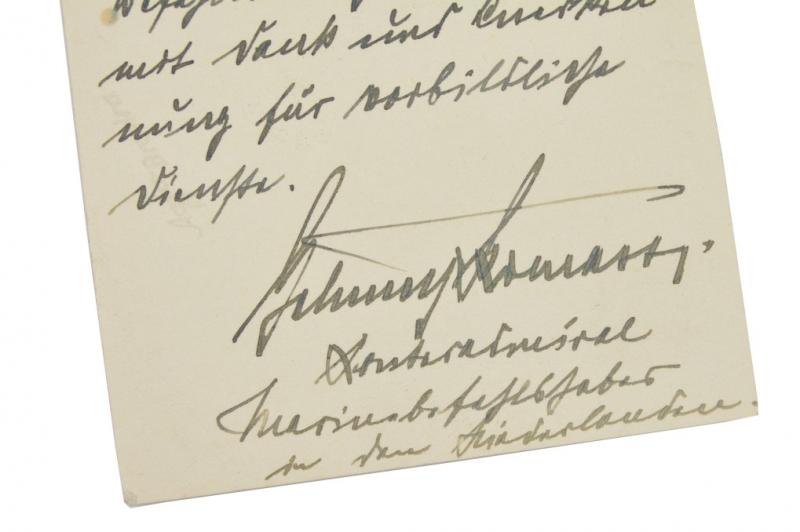 mit Dank und Anerken
nung für vorbildliche
Dienste.
Konteradmiral
Marinebefehlshaber
in den Niederlanden.